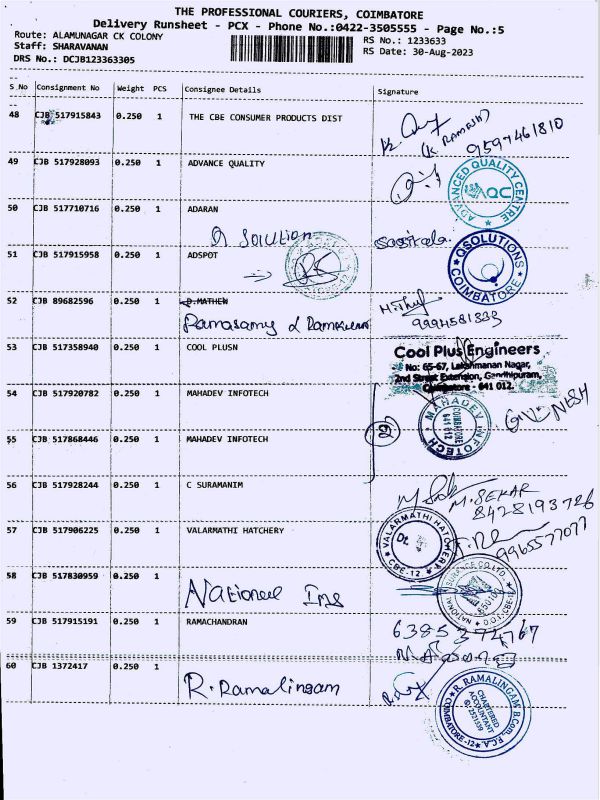 THE PROFESSIONAL COURIERS, COIMBATORE
Delivery Runsheet - PCX - Phone No.:0422-3505555 - Page No.:5
Route: ALAMUNAGAR CK COLONY
RS No.: 1233633
Staff: SHARAVANAN
RS Date: 30-Aug-2023
DRS No.: DCJB123363305
S No Consignment No Weight PCS Consignee Details Signature
48 CJB 517915843 0.250 1 THE CBE CONSUMER PRODUCTS DIST
(K RAMESH)
9597461810
49 CJB 517928093 0.250 1 ADVANCE QUALITY
ADVANCED QUALITY CENTRE
AQC
50 CJB 517710716 0.250 1 ADARAN
Q Solution
Sasikala
51 CJB 517915958 0.250 1 ADSPOT
QSOLUTIONS
COIMBATORE
52 CJB 89682596 0.250 1 P.MATHEN
Ramasamy &
53 CJB 517358940 0.250 1 COOL PLUSN
Cool Plus Engineers
No: 65-67, Lakshmanan Nagar,
2nd Street Extension, Gandhipuram,
Coimbatore - 641 012.
54 CJB 517920782 0.250 1 MAHADEV INFOTECH
MAHADEV INFOTECH
COIMBATORE
641 012
55 CJB 517868446 0.250 1 MAHADEV INFOTECH
56 CJB 517928244 0.250 1 C SURAMANIM
M.SEKAR
8428193726
57 CJB 517906225 0.250 1 VALARMATHI HATCHERY
VALARMATHI HATCHERY
Dt.
CBE-12
9965577077
58 CJB 517830959 0.250 1
National Ins
59 CJB 517915191 0.250 1 RAMACHANDRAN
6385374767
60 CJB 1372417 0.250 1
R. Ramalingam
R. RAMALINGAM B.Com. F.C.A.
CHARTERED
ACCOUNTANT
COIMBATORE-12